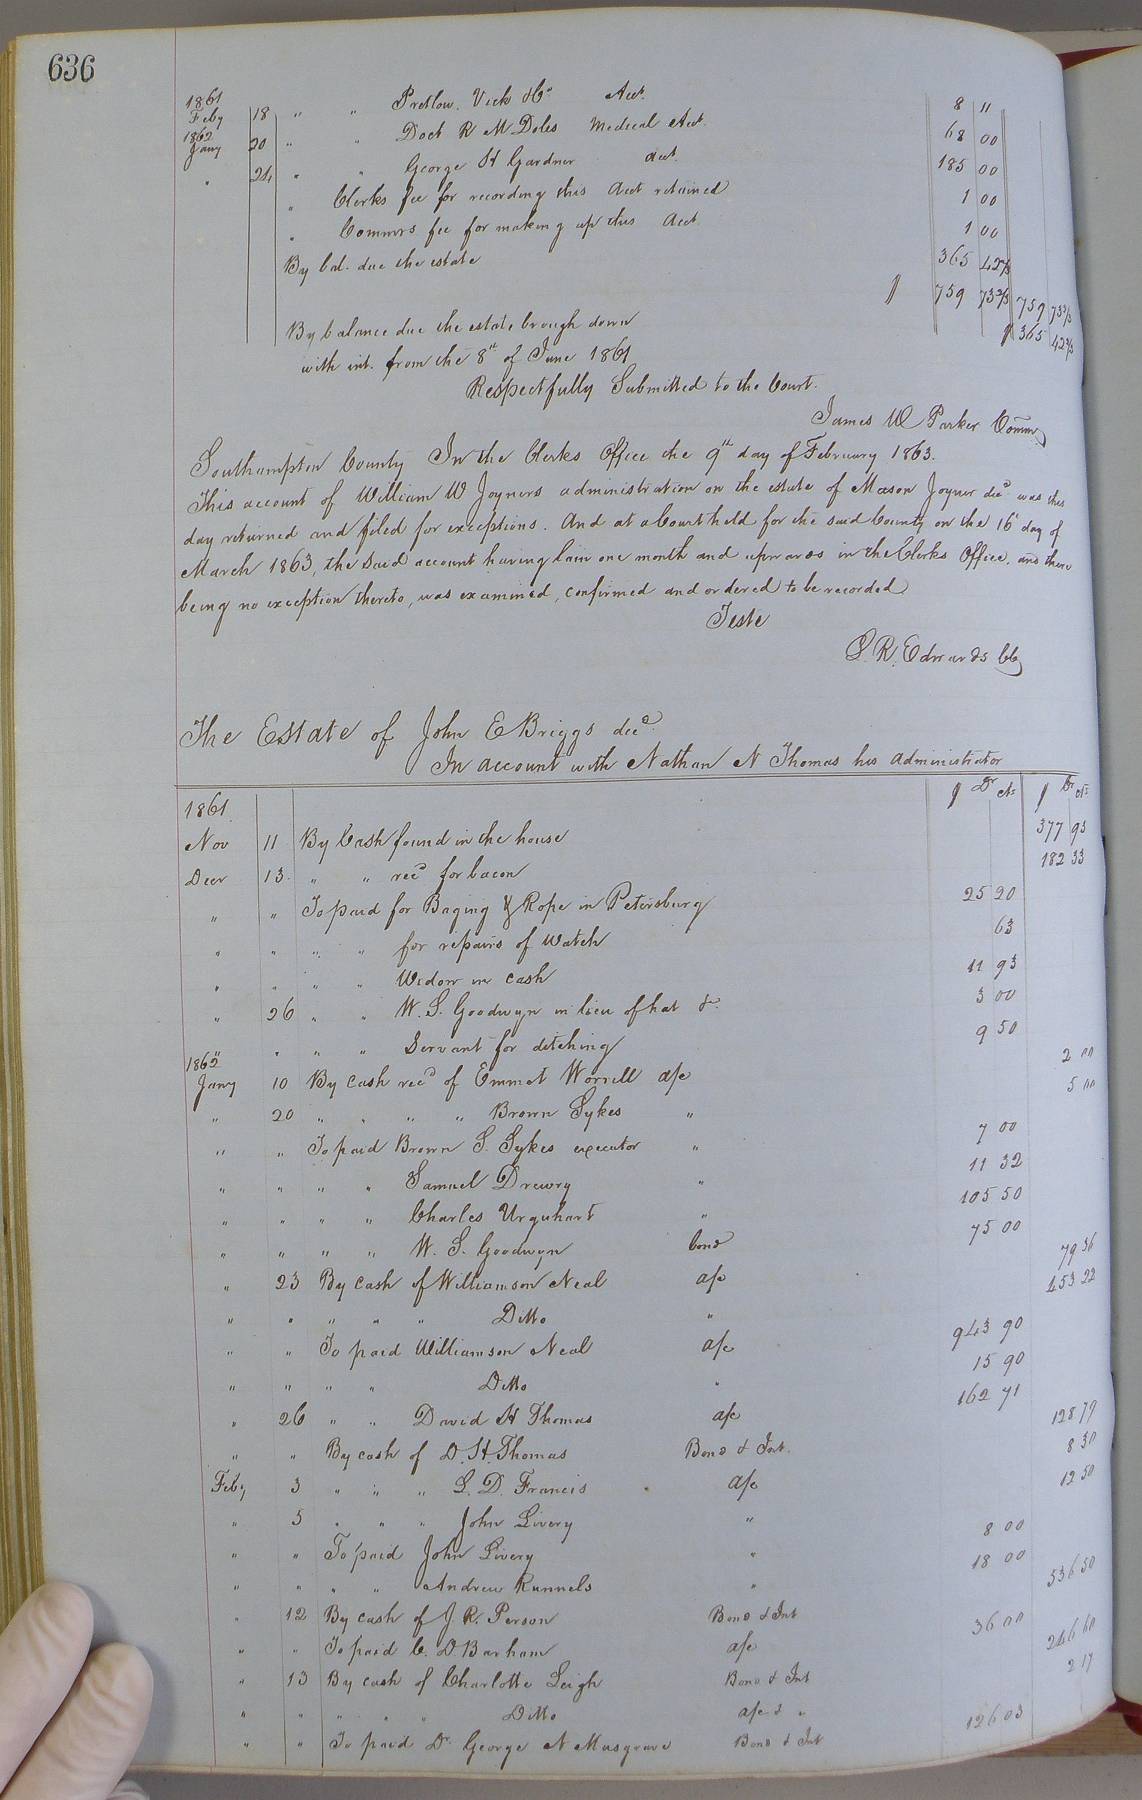 636
1861 Feby 18 " " Pretlow, Vick & Co Acct. 8 11
1862 Jany 20 " " Doct R M Doles Medical Act. 68 00
" 24 " " George H Gardner acct. 185 00
" Clerks fee for recording this Acct retained 1 00
" Commrs fee for making up this Acct 1 00
By bal. due the estate 365 42 2/3
$ 759 73 2/3 759 73 2/3
By balance due the estate brough down $ 365 42 2/3
with int. from the 8th of June 1861
Respectfully Submitted to the Court.
James W Parker Commr
Southampton County In the Clerks Office the 9th day of February 1863.
This account of William W Joyners administration on the estate of Mason Joyner decd was this
day returned and filed for exceptions. And at a Court held for the said County on the 16th day of
March 1863, the said account having lain one month and upwards in the Clerks Office, and there
being no exception thereto, was examined, confirmed and ordered to be recorded
Teste
L. R. Edwards CC
The Estate of John E Briggs decd
In account with Nathan N Thomas his administrator
1861 $ Dr cts $ Cr cts
Nov 11 By Cash found in the house 377 93
Decr 13 " " recd for bacon 182 33
" " To paid for Baging & Rope in Petersburg 25 20
" " " " for repairs of watch 63
" " " " Widow in cash 11 93
" 26 " " W. S. Goodwyn in lieu of hat &c 3 00
" " " " Servant for ditching 9 50
1862 Jany 10 By cash recd of Emmet Worrell a/c 2 00
" 20 " " " " Brown Sykes " 5 00
" " To paid Brown S. Sykes executor " 7 00
" " " " Samuel Drewry " 11 32
" " " " Charles Urquhart " 105 50
" " " " W. S. Goodwyn bond 75 00
" 23 By cash of Williamson Neal a/c 79 36
" " " " " Ditto " 453 22
" " To paid Williamson Neal a/c 943 90
" " " " Ditto " 15 90
" 26 " " David H Thomas a/c 162 71
" " By cash of D. H. Thomas Bond & Int. 128 79
Feby 3 " " " L. D. Francis a/c 8 30
" 5 " " " John Livery " 12 50
" " To paid John Livery " 8 00
" " " " Andrew Runnels " 18 00
" 12 By cash of J. R. Person Bond & Int 536 50
" " To paid C. D. Barham a/c 36 00
" 13 By cash of Charlotte Leigh Bond & Int 246 60
" " " " " Ditto a/c & " 2 17
" " To paid Dr. George N Musgrave Bond & Int 126 03